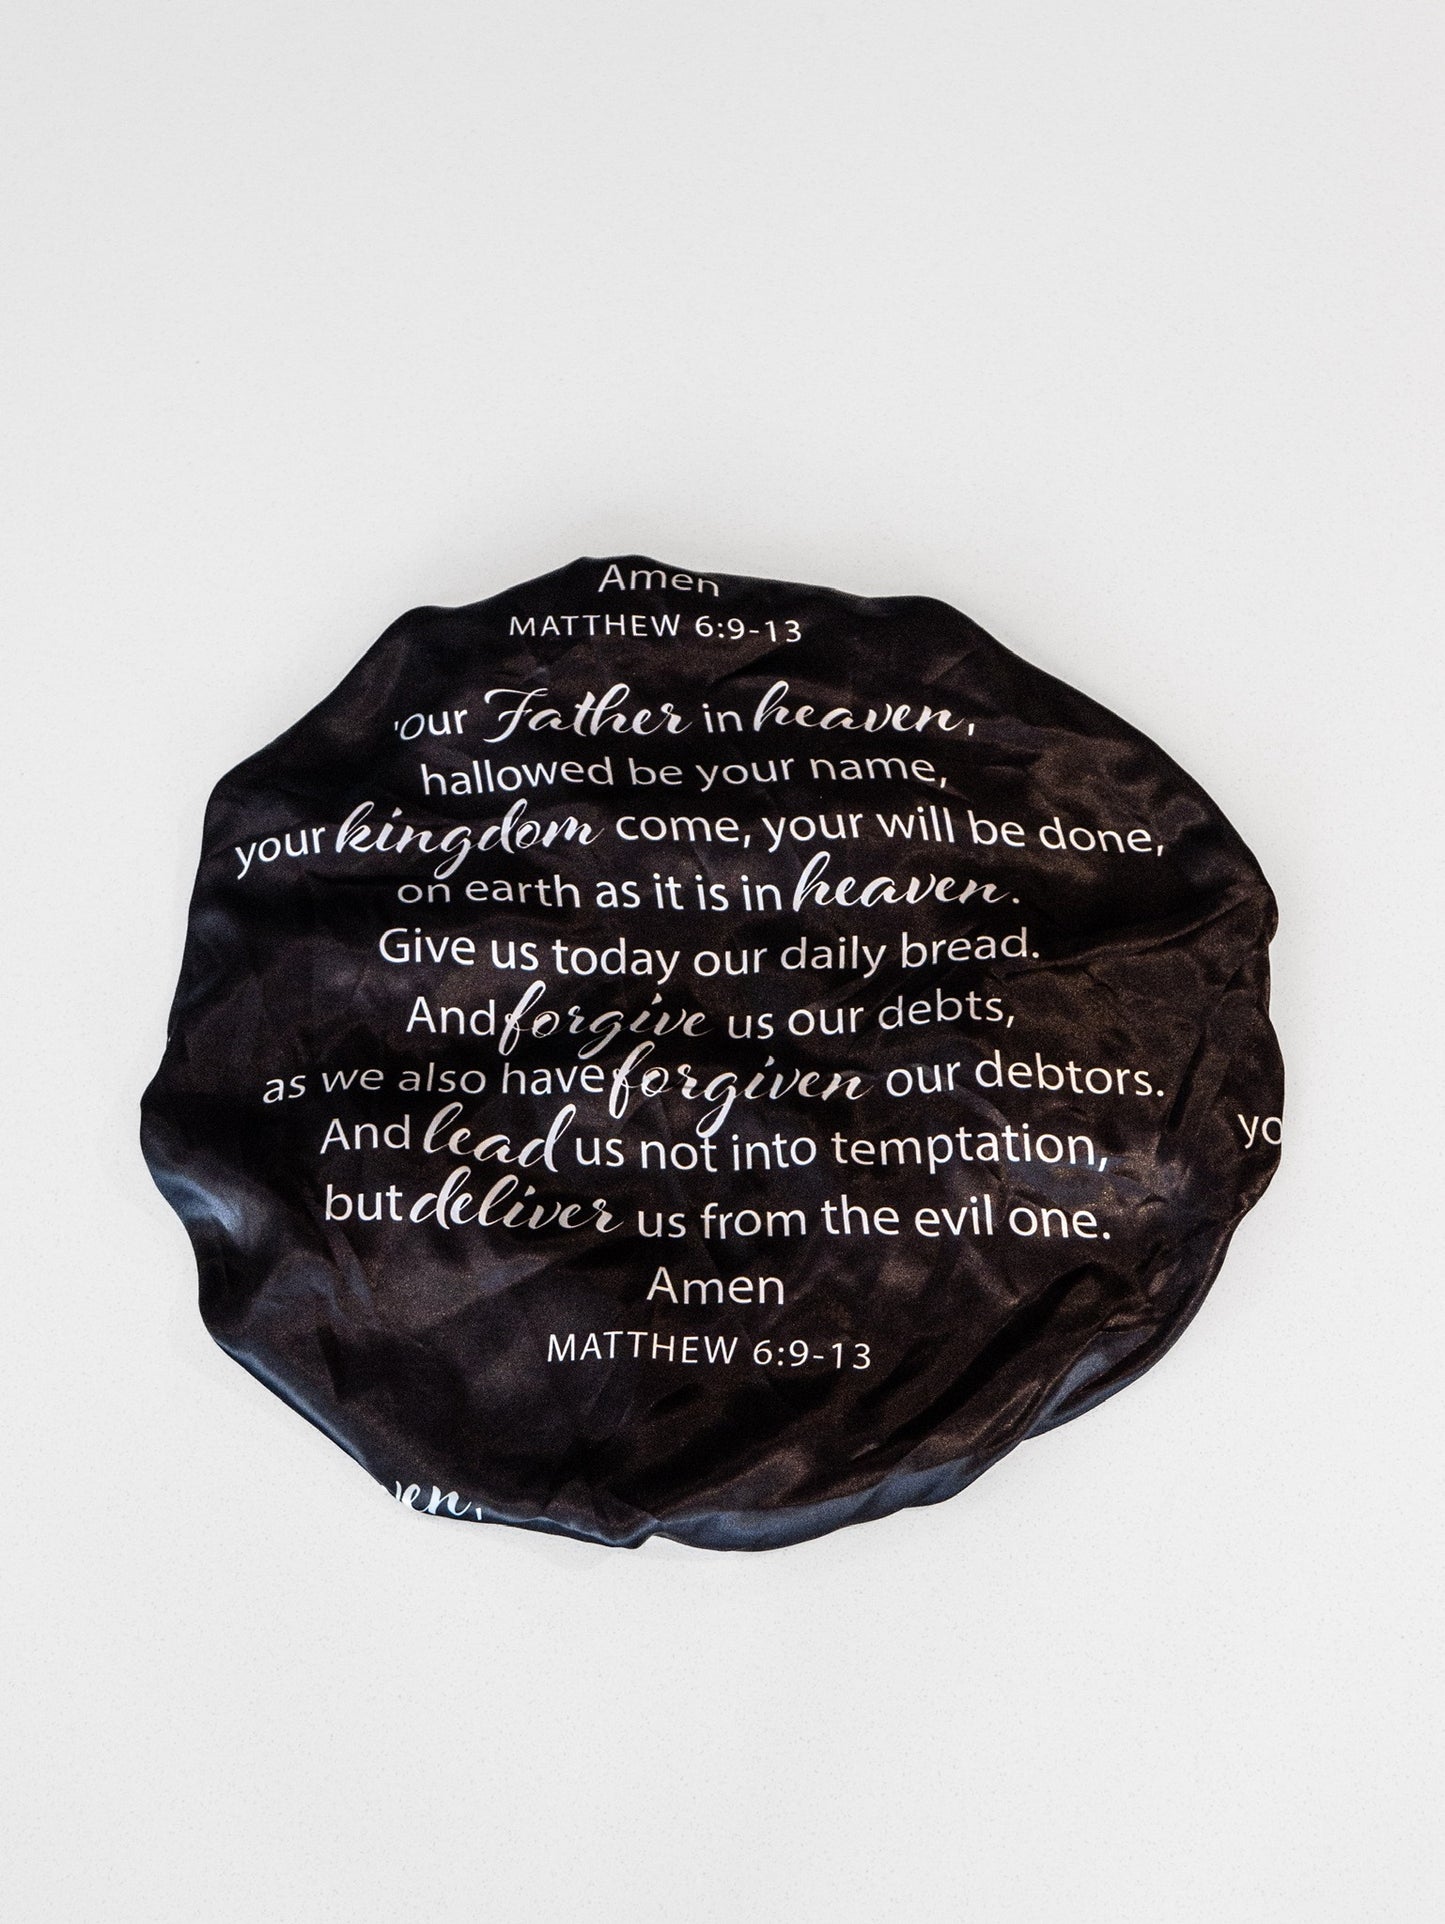 Amen
MATTHEW 6:9-13
'Our Father in heaven,
hallowed be your name,
your kingdom come, your will be done,
on earth as it is in heaven.
Give us today our daily bread.
And forgive us our debts,
as we also have forgiven our debtors.
And lead us not into temptation,
yo
but deliver us from the evil one.
Amen
MATTHEW 6:9-13
ven,